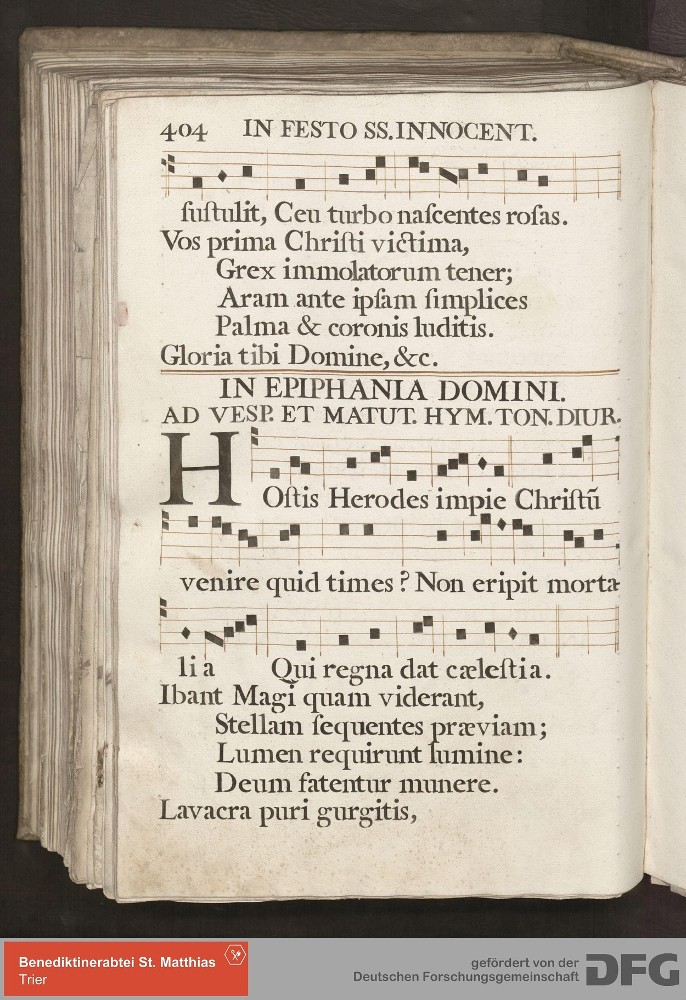 404 IN FESTO SS. INNOCENT.
ſuſtulit, Ceu turbo naſcentes roſas.
Vos prima Chriſti victima,
Grex immolatorum tener;
Aram ante ipſam ſimplices
Palma & coronis luditis.
Gloria tibi Domine, &c.
IN EPIPHANIA DOMINI.
AD VESP. ET MATUT. HYM. TON. DIUR.
HOſtis Herodes impie Chriſtū
venire quid times? Non eripit morta-
lia Qui regna dat cæleſtia.
Ibant Magi quam viderant,
Stellam ſequentes præviam;
Lumen requirunt lumine:
Deum fatentur munere.
Lavacra puri gurgitis,
Benediktinerabtei St. Matthias
Trier
gefördert von der
Deutschen Forschungsgemeinschaft DFG